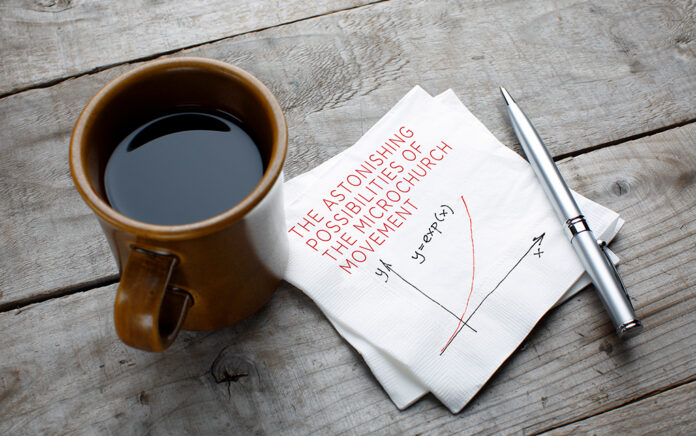 THE ASTONISHING
POSSIBILITIES OF
THE MICROCHURCH
MOVEMENT
y=exp(x)
y
x